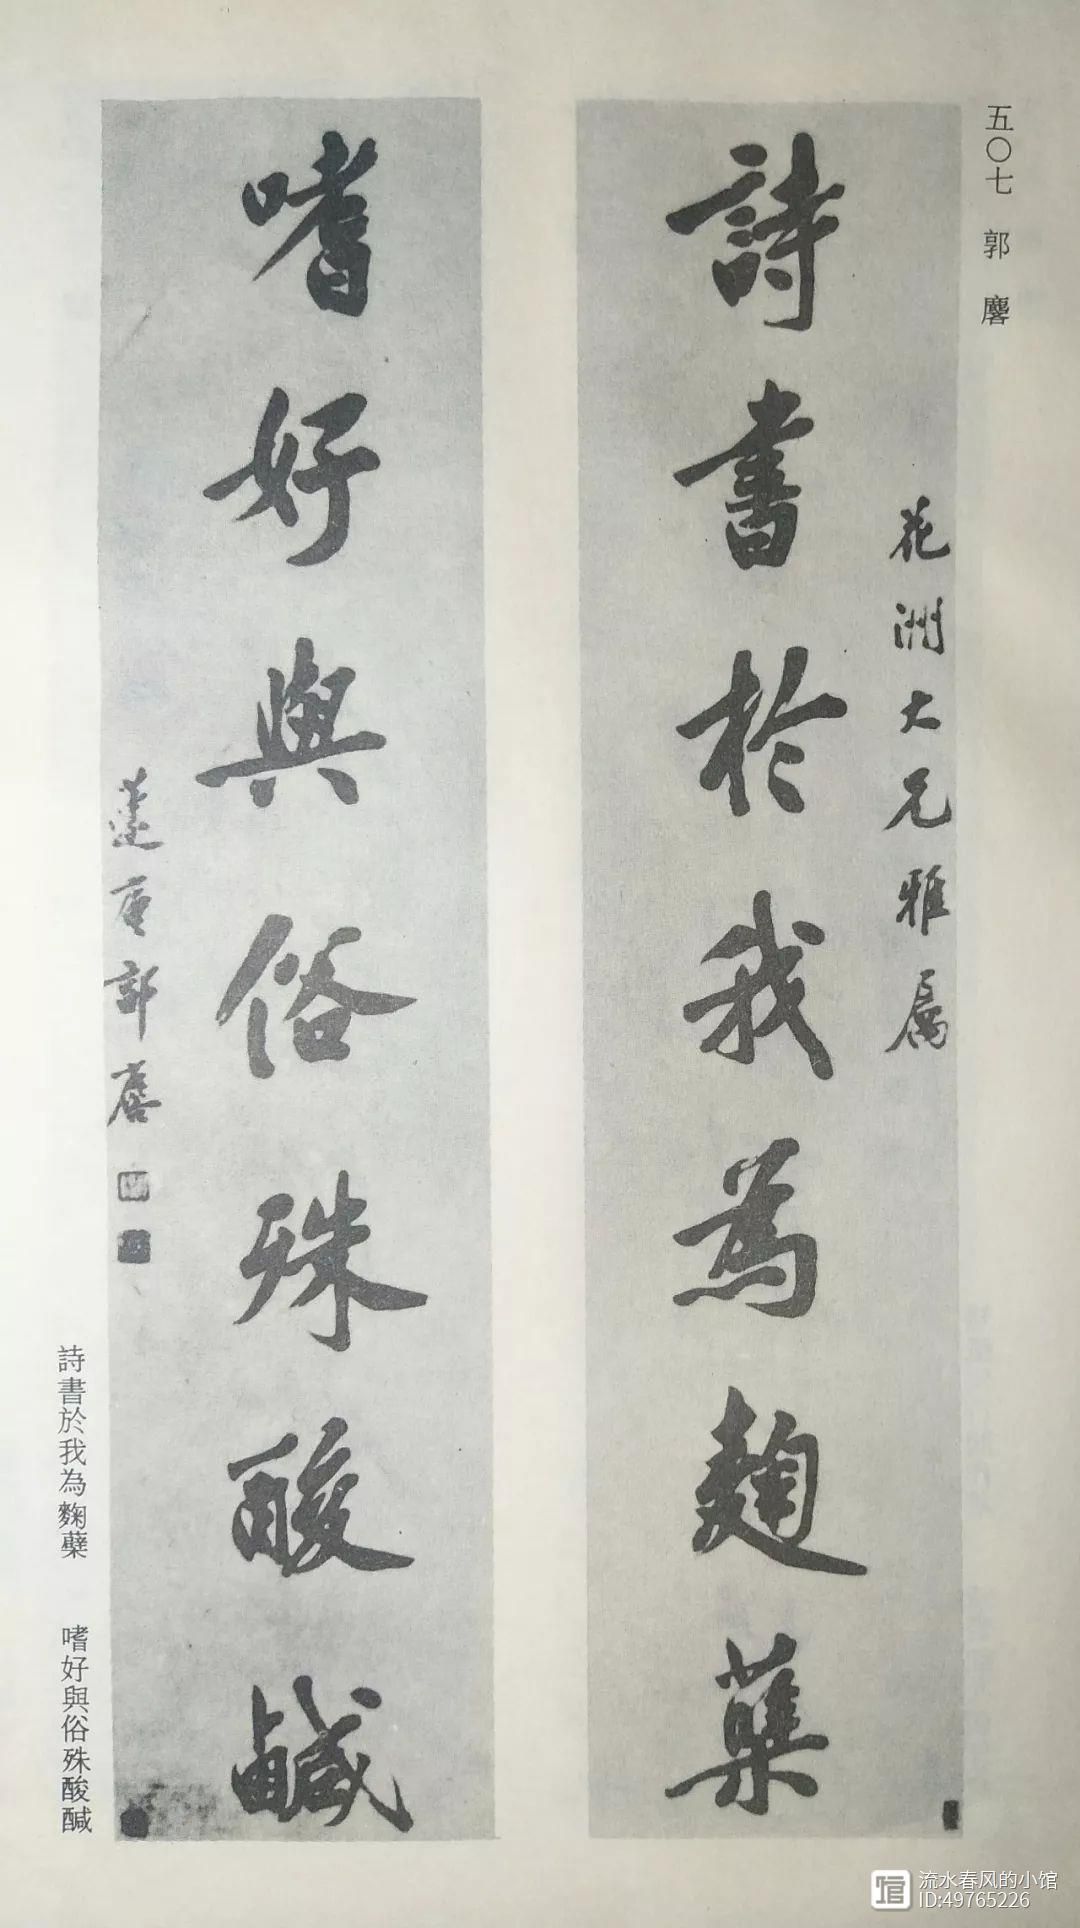 五〇七 郭 麐
花洲大兄雅屬
詩書於我為麴蘖
嗜好與俗殊酸鹹
蓮庵郭麐
詩書於我為麴蘗 嗜好與俗殊酸醎
流水春风的小馆
ID:49765226